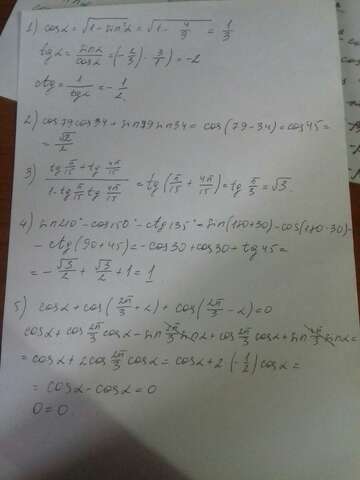 1) cosα = √1-sin²α = √1 - 4/9 = 1/3
tgα = sinα/cosα = (-2/3) · 3/1 = -2
ctg = 1/tgα = -1/2.
2) cos79cos34 + sin79sin34 = cos(79-34) = cos45 =
= √2/2
3) (tg π/15 + tg 4π/15)/(1-tg π/15 tg 4π/15) = tg(π/15 + 4π/15) = tg π/3 = √3.
4) sin210°-cos150°-ctg135° = sin(180+30)-cos(180-30)-
- ctg(90+45) = -cos30 + cos30 + tg45 =
= -√3/2 + √3/2 + 1 = 1
5) cosα + cos(2π/3 + α) + cos(2π/3 - α) = 0
cosα + cos 2π/3 cosα - sin 2π/3 sinα + cos 2π/3 cosα + sin 2π/3 sinα =
= cosα + 2cos 2π/3 cosα = cosα + 2(-1/2)cosα =
= cosα - cosα = 0
0 = 0.